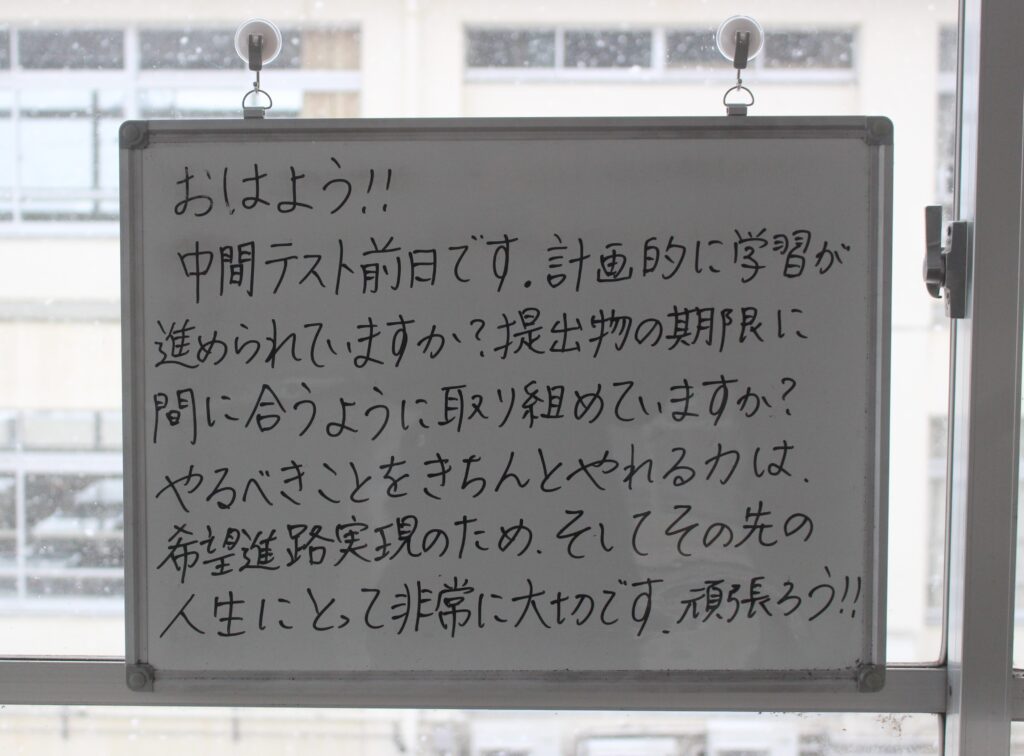 おはよう!!
中間テスト前日です.計画的に学習が
進められていますか?提出物の期限に
間に合うように取り組めていますか?
やるべきことをきちんとやれる力は、
希望進路実現のため、そしてその先の
人生にとって非常に大切です.頑張ろう!!